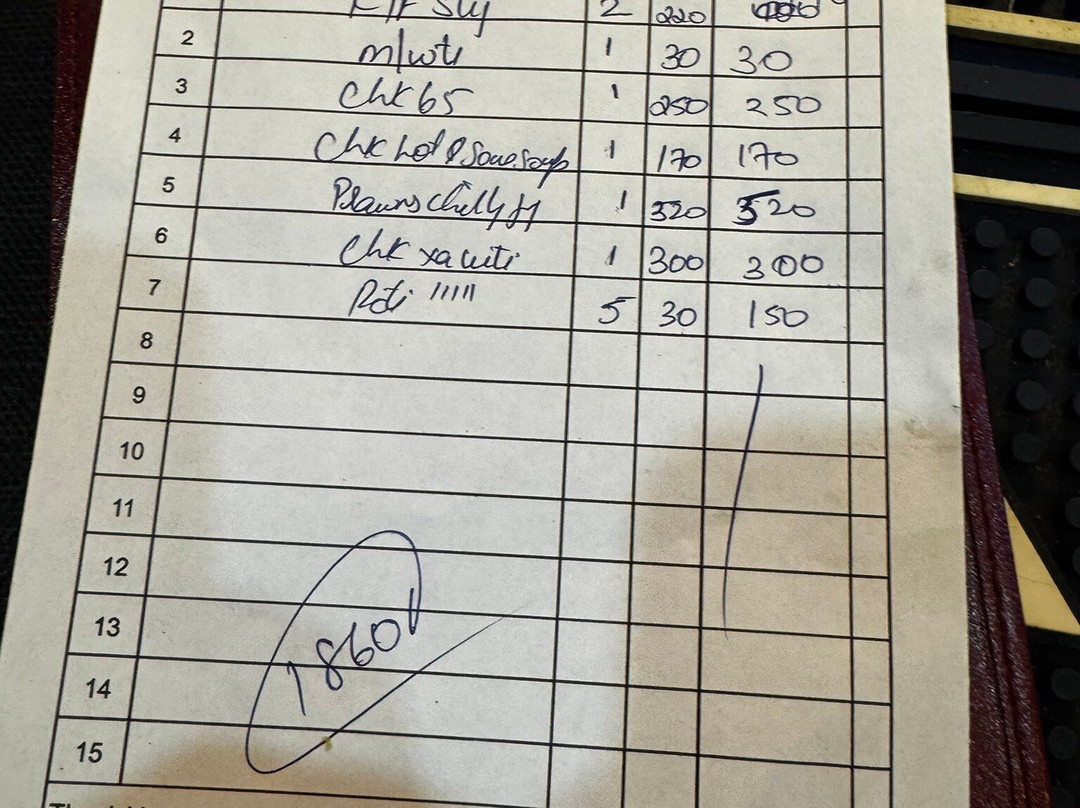 2 220
2 m/wtr 1 30 30
3 Chk 65 1 250 250
4 Chk hot & Sour Soup 1 170 170
5 Prawns chilly 1 320 320
6 Chk xacuti 1 300 300
7 Roti 5 30 150
8
9
10
11
12
13
1860
14
15